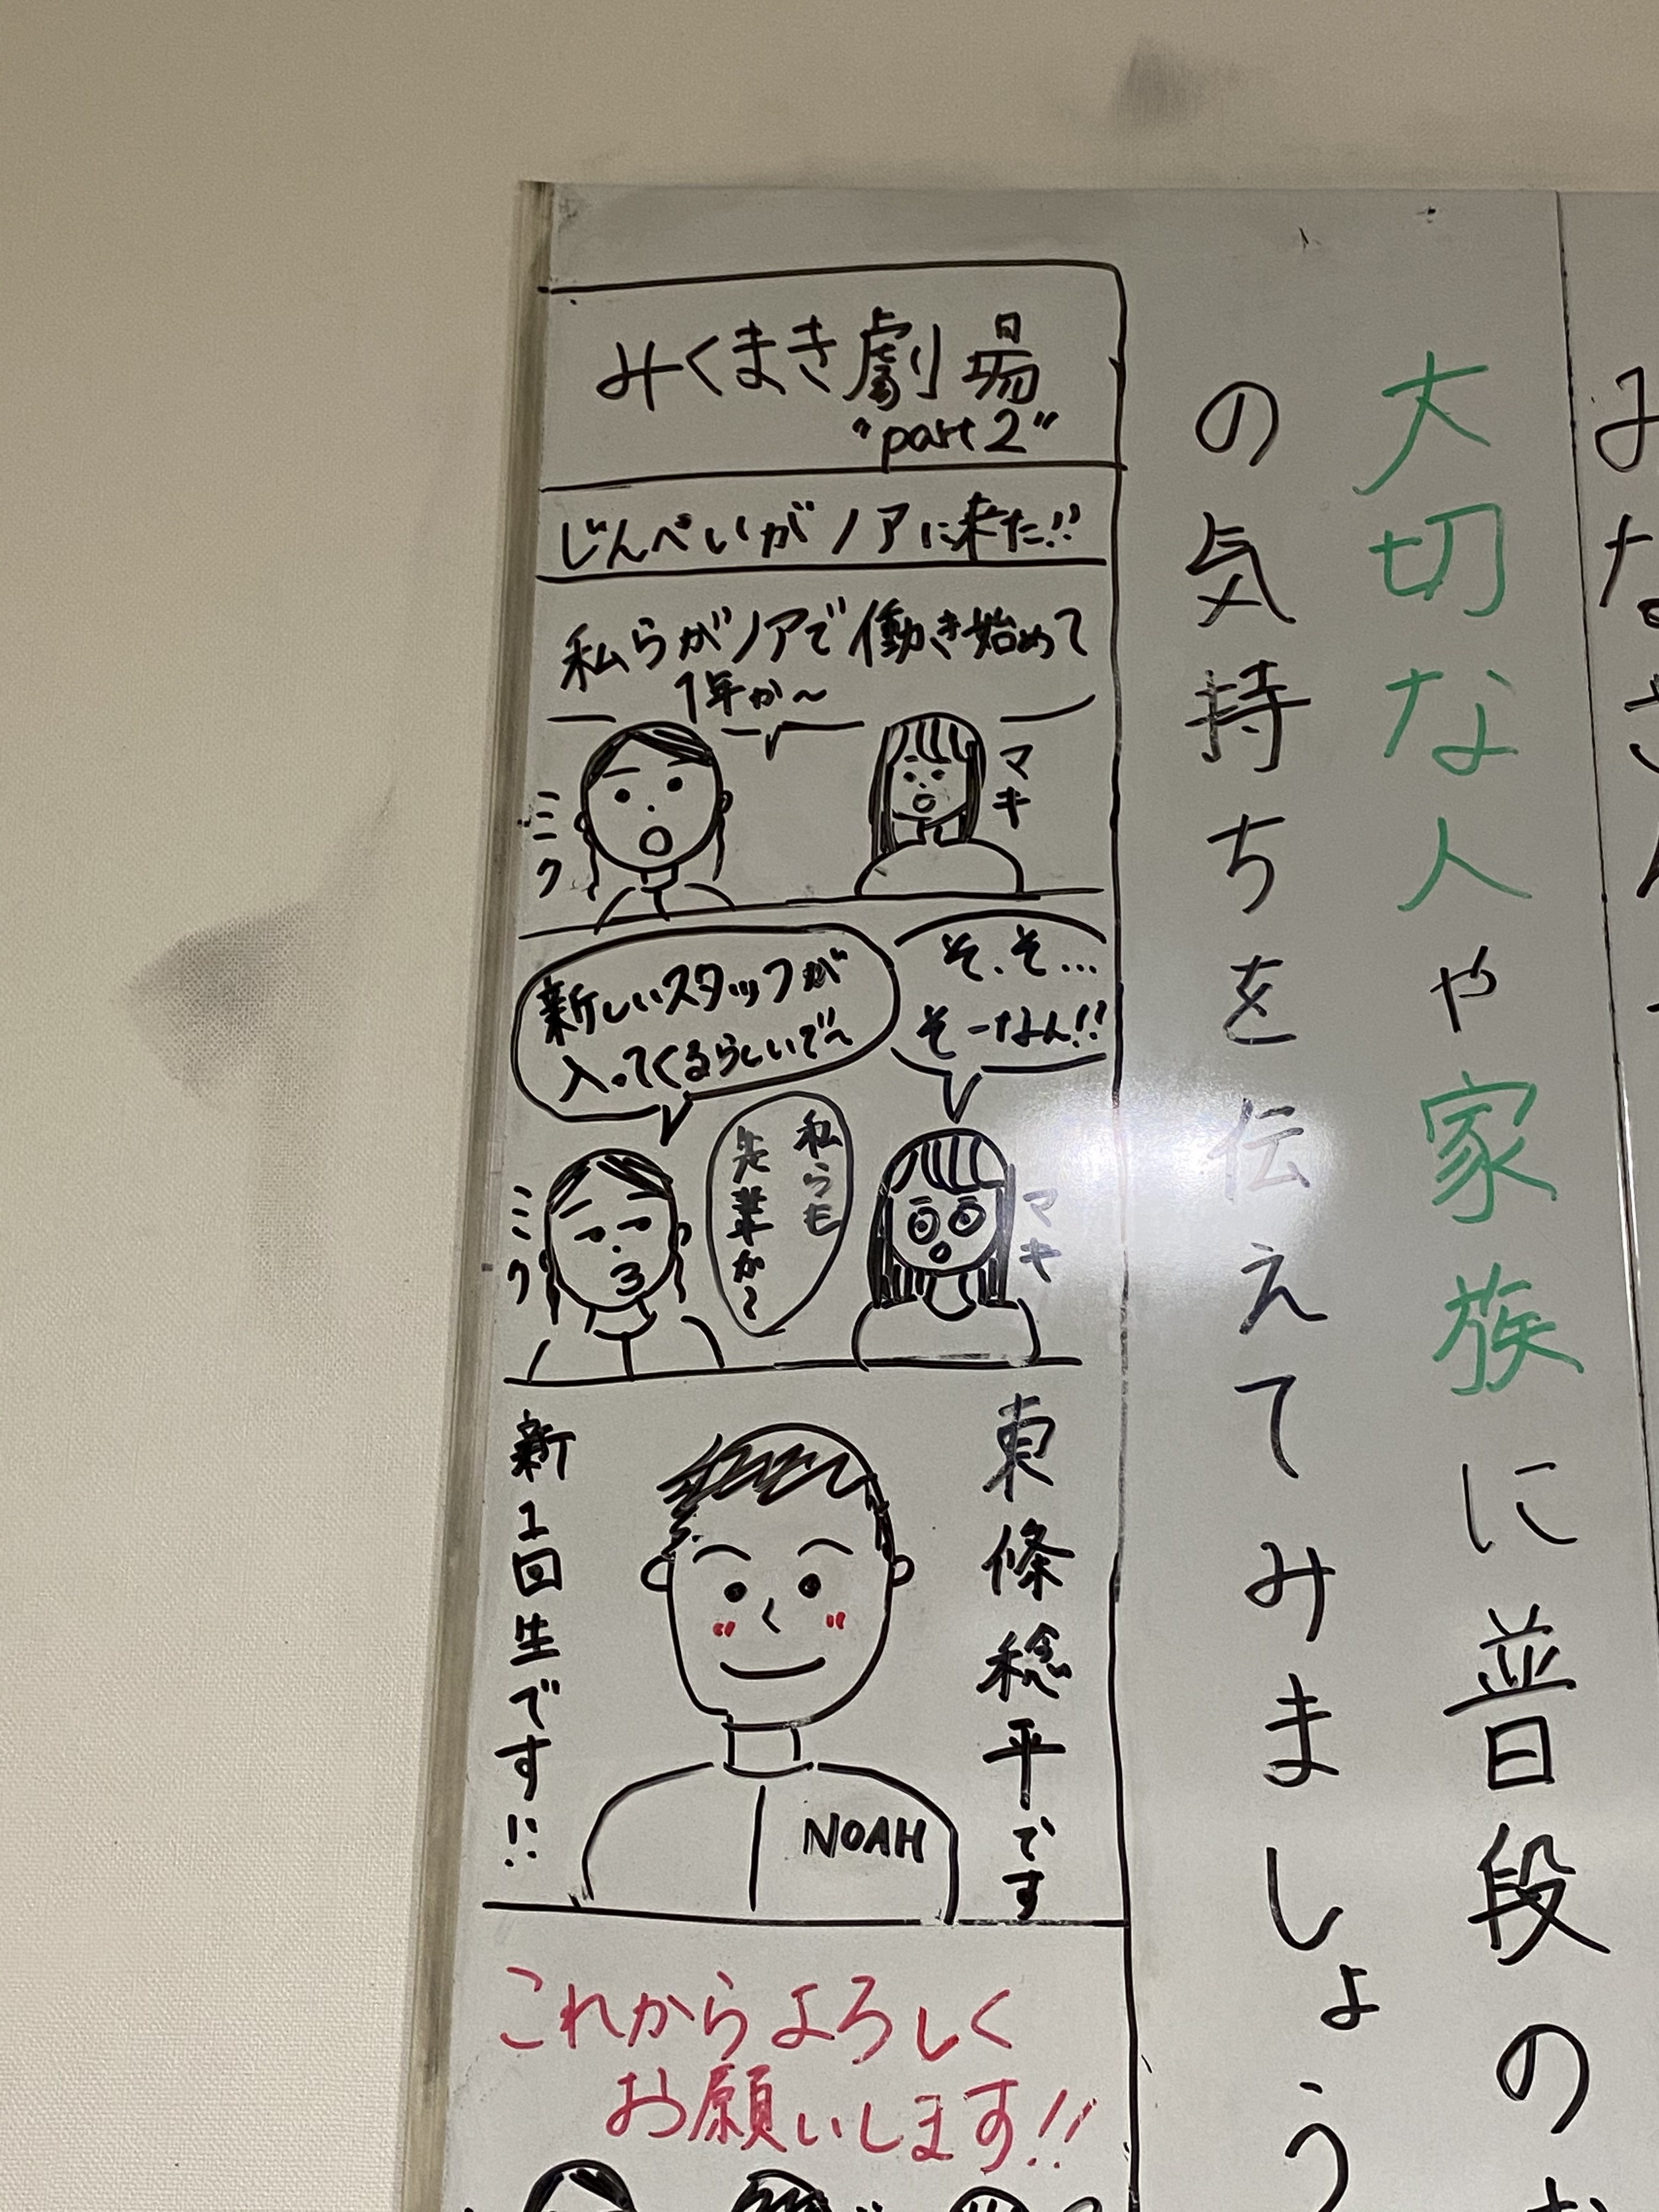 みくまき劇場
"part2"
じんぺいがノアに来た!!
私らがノアで働き始めて
1年か〜
ミク
マキ
新しいスタッフが
入ってくるらしいで〜
そ、そ…
そーなん!!
私らも
先輩か〜
ミク
マキ
東條稔平です
新1回生です!!
NOAH
これからよろしく
お願いします!!
大切な人や家族に普段の
の気持ちを伝えてみましょう